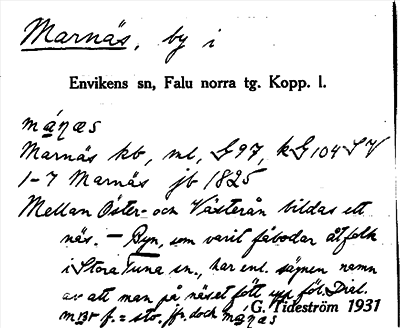 Marnäs, by i
Envikens sn, Falu norra tg. Kopp. l.
máṇæs
Marnäs kb, ml, G97, kG104SV
1-7 Marnäs jb 1825
Mellan Öster- och Västerån bildas ett
näs. — Byn, som varit fäbodar åt folk
i Stora Tuna sn., har enl. sägnen namn
av att man på näset fött upp föl. Dial.
f. = sto, jfr. dock máṇæs
G. Tideström 1931